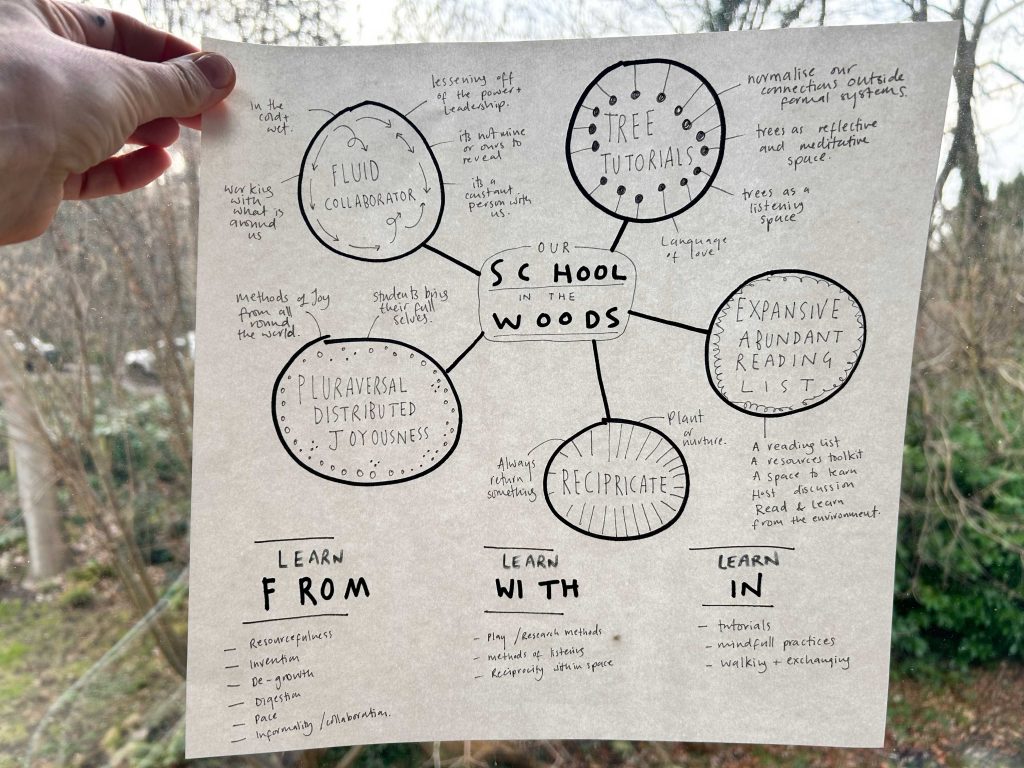 In the
cold +
wet.
lessening off
of the power +
leadership.
its not mine
or ours to
reveal
its a
constant
person with
us.
working
with
what is
around
us
FLUID
COLLABORATOR
TREE
TUTORIALS
normalise our
connections outside
formal systems.
trees as reflective
and meditative
space.
trees as a
listening
space
Language
of love
OUR
SCHOOL
IN THE
WOODS
methods of Joy
from all
round
the world.
students bring
their full
selves.
PLURAVERSAL
DISTRIBUTED
JOYOUSNESS
EXPANSIVE
ABUNDANT
READING
LIST
A reading list
A resources toolkit
A space to learn
Host discussion
Read & Learn
from the environment.
Plant
or
nurture.
Always
return
something
RECIPRICATE
LEARN
FROM
— Resourcefulness
— Invention
— De-growth
— Digestion
— Pace
— Informality / collaboration.
LEARN
WITH
– Play / Research methods
– methods of listening
– Reciprocity within space
LEARN
IN
– tutorials
– mindfull practices
– walking + exchanging